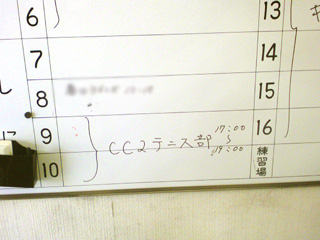 6
7
8
9
10
CC2テニス部 17:00
〜
19:00
13
14
15
16
練習場